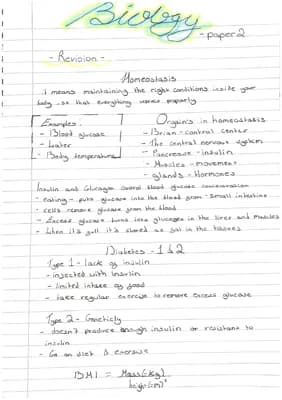 Biology
- paper 2
- Revision -
Homeostasis
it means maintaining the right conditions inside your
body so that everything works properly
Examples:
- Blood glucose
- water
- Body temperature
Organs in homeostasis
- Brian - control center
- The central nervous system
- Pancreas - insulin
- Muscles - movement
- glands - Hormones
Insulin and Glucagon control blood glucose concentration
- eating - puts glucose into the blood from small intestine
- cells remove glucose from the blood
- Excess glucose turns into glycogen in the liver and muscles
- When it's full it's stored as in the tissues
Diabetes - 1 & 2
Type 1 - lack of insulin
- injected with insulin
- limited intake of food
- take regular exercise to remove excess glucose
Type 2 -
- doesn't produce enough insulin or resistant to
insulin
- Go on diet &
BMI = Mass (kg)
height (m)²